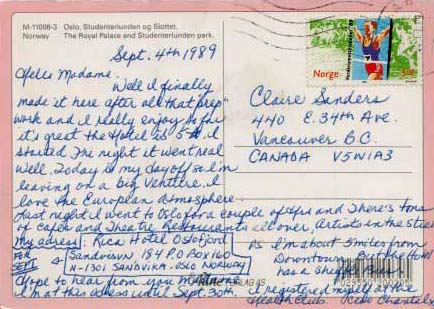 M-11008-3 Oslo. Studenterlunden og Slottet.
Norway The Royal Palace and Studenterlunden park.
Sept. 4th 1989
Hello Madame.
Well I finally
made it here after all that prep"
work and I really enjoy so far
it's great the Hotel is 5☆. I
started Fri night it went real
well. Today is my day off so I'm
leaving on a big venture. I
love the European Atmosphere.
Last night I went to Oslo for a couple of hrs and There's tons
of cafes and Theatre Restaurants all over, Artists in the street
My adress: Rica Hotel Oslofjord
FOR SEPT
Sandvisvn, 184 P.O Box 160
N-1301 SANDVIKA-OSLO NORWAY
Hope to hear from you Madame
I'm at this adress until Sept. 30th
so I'm about 5 miles from
Downtown. But the Hotel
has a Bus.
I registered myself at the
Health Club.
Norge
Claire Sanders
440 E. 34th Ave.
Vancouver B.C.
CANADA V5W1A3